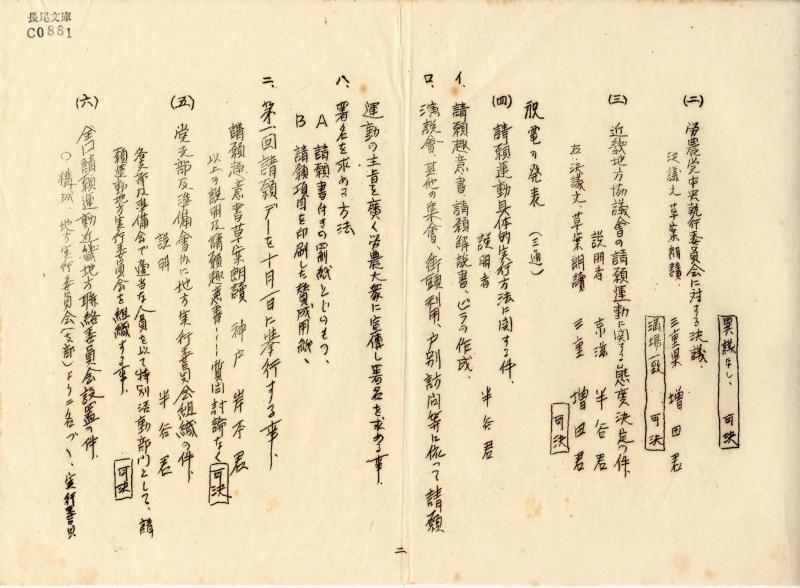 長尾文庫
C0881
異議なし、可決
(二) 労農党中央執行委員会に対する決議、
決議文草案朗読、三重県 増田君
満場一致 可決
(三) 近畿地方協議會の請願運動に関する態度決定の件、
説明者 京滋 半谷君
右、決議文、草案朗読 三重 増田君
可決
祝電の発表 (三通)
(四) 請願運動具体的実行方法に関する件、
説明者 半谷君
イ、請願趣意書、請願解説書、ビラの作成、
ロ、演説會、其他の集會、街頭利用、戸別訪問等に依って請願
運動の主旨を廣く労農大衆に宣傳し署名を求める事、
ハ、署名を求める方法
A 請願書付きの罫紙とじのもの、
B 請願項目を印刷した賛成用紙、
ニ、第一回請願デーを十月一日に挙行する事、
請願趣意書草案朗読 神戸 岸本君
以上の説明及請願趣意書・・・質問討論なく 可決
(五) 党支部及準備會内に地方実行委員会組織の件、
説明 半谷君
各支部及準備会で適当な人員を以て特別活動部門として、請
願運動地方実行委員会を組織する事、
可決
(六) 全国請願運動近畿地方聯絡委員会設置の件、
○構成 地方実行委員会(支部)より二名づゝ、実行委員
二